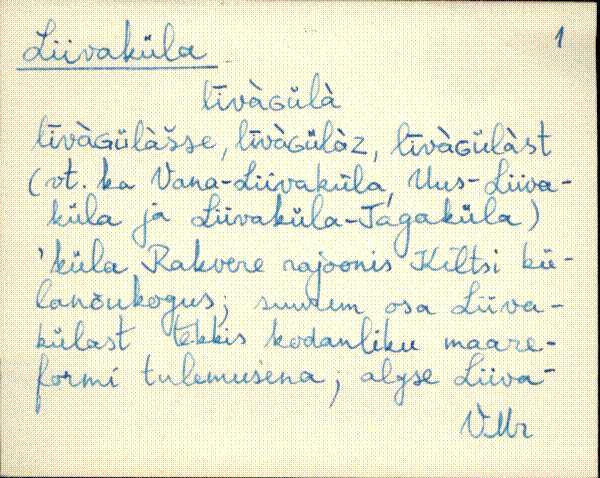 Liivaküla
1
līvàɢülà
līvàɢülàšse, līvàɢülàz, līvàɢülàst
(vt. ka Vana-Liivaküla, Uus-Liiva-
küla ja Liivaküla-Jagaküla)
'küla Rakvere rajoonis Kiltsi kü-
lanõukogus; suurem osa Liiva-
külast tekkis kodanliku maare-
formi tulemusena; algse Liiva-
VMr